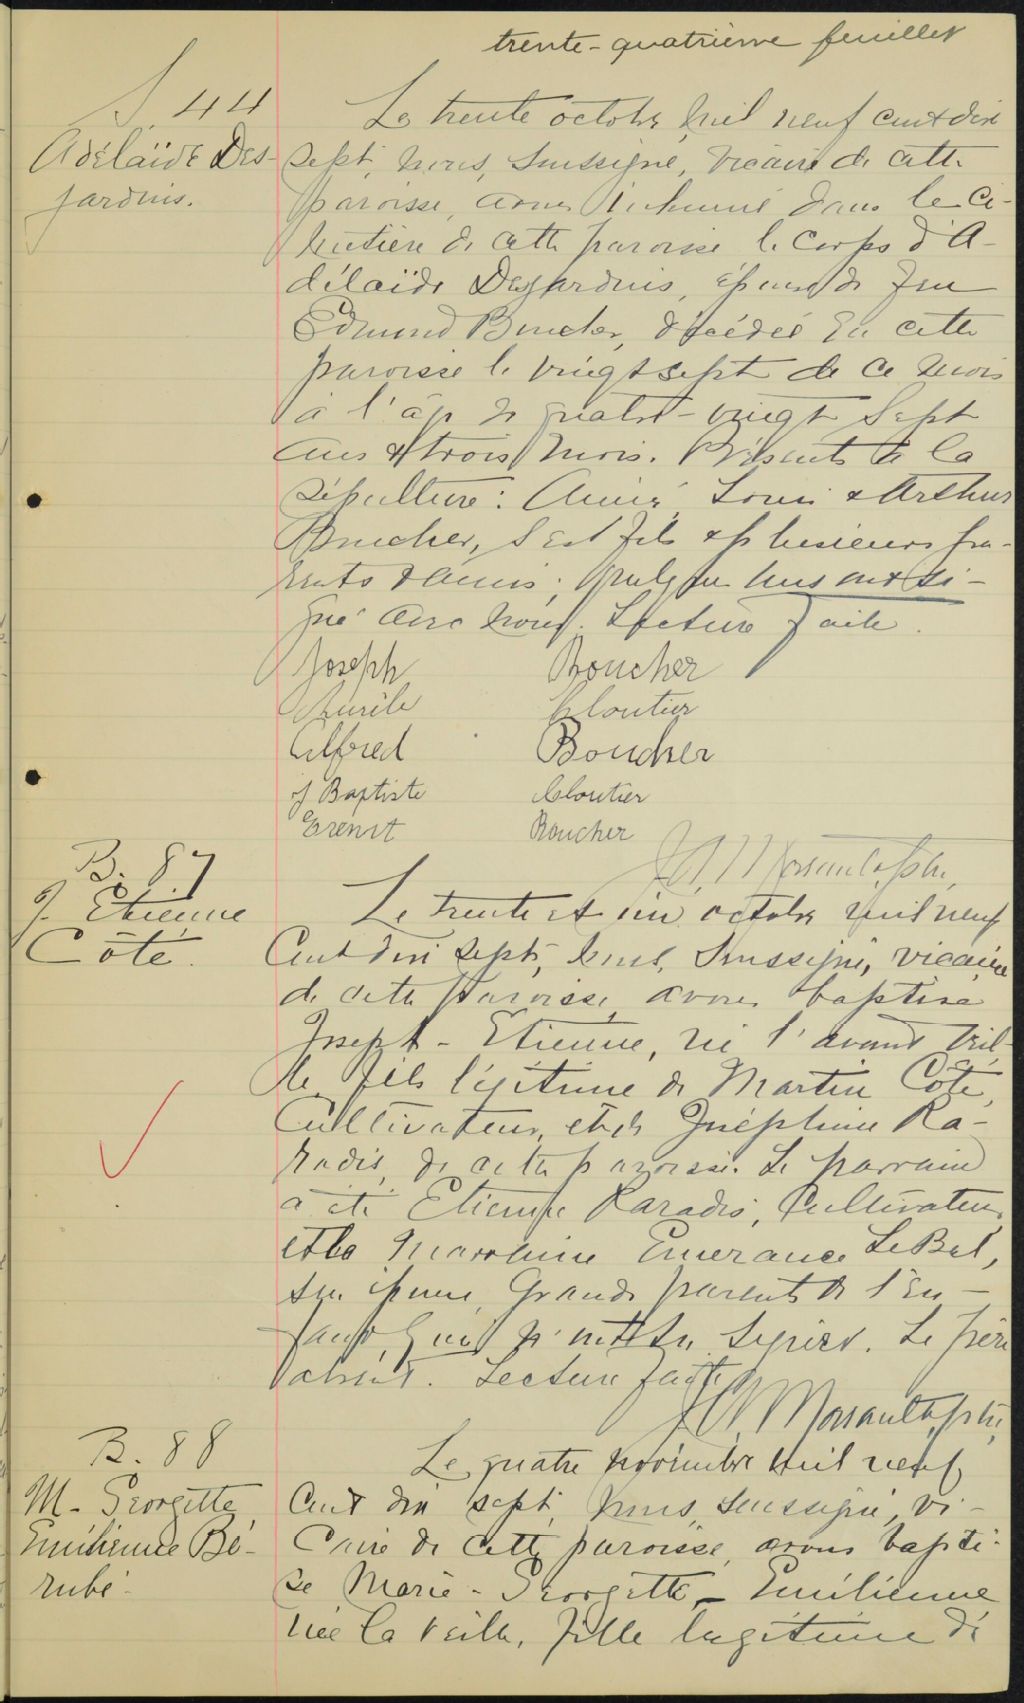 trente-quatrième feuillet
S. 44
Adélaïde Des-
jardins.
Le trente octobre mil neuf cent dix
sept, nous, soussigné, vicaire de cette
paroisse, avons inhumé dans le ci-
metière de cette paroisse le corps d'A-
délaïde Desjardins, épouse de feu
Edmond Boucher, décédée en cette
paroisse le vingt sept de ce mois
à l'âge de quatre-vingt sept
ans & trois mois. Présents à la
sépulture: Aimé, Louis & Arthur
Boucher, ses fils & plusieurs pa-
rents & amis; quelques uns ont si-
gné avec nous. Lecture faite.
Joseph Boucher
Cloutier
Alfred Boucher
J Baptiste Cloutier
Ernest Boucher
Ptre.
B. 87
J. Etienne
Côté.
Le trente et un octobre mil neuf
cent dix sept, nous, soussigné, vicaire
de cette paroisse, avons baptisé
Joseph-Etienne, né l'avant veil-
le, fils légitime de Martin Côté,
cultivateur, et de Joséphine Pa-
radis, de cette paroisse. Le parrain
a été Etienne Paradis, cultivateur,
et la marraine Emerance LeBel,
son épouse, grands parents de l'en-
fant, qui n'ont su signer. Le père
absent. Lecture faite.
Ptre.
B. 88
M-Georgette
Emilienne Bé-
rubé.
Le quatre novembre mil neuf
cent dix sept, nous, soussigné, vi-
caire de cette paroisse, avons bapti-
sé Marie-Georgette-Emilienne
née la veille, fille légitime de